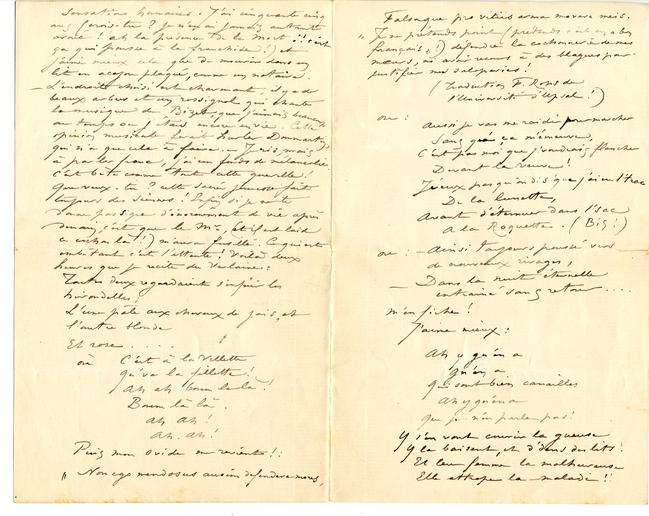 sensations humaines. J'ai cinquante cinq
ans, serois-tu? Je n'en ai jamais autant
avoué! ah la présence de la Mort!! c'est
ça qui pousse à la franchise!) et
j'aime mieux cela que de mourir dans un
lit en acajou plaqué, comme un notaire.
— L'endroit choisi est charmant, il y a de
beaux arbres et un rossignol qui chante
la musique de Bizet que j'aimais beaucoup
au temps où j'étais encore en vie. Cette
opinion musicale ferait hurler
qui n'a que cela à faire. — Je ris, mais
à parler franc, j'ai un fonds de mélancolie
c'est bête comme tout cette querelle!
Que veux-tu? cette sacrée jeunesse fait
toujours des siennes! Enfin si je ne te
donne pas signe d'énormément de vie après
demain, c'est que le Mr, et il est laid
ce cochon là!) m'aura fusillé. Ce qui est
embêtant c'est l'attente! Voilà deux
heures que je récite du Verlaine:
Toutes deux regardaient s'enfuir les
hirondelles:
L'une pâle aux cheveux de jais, et
l'autre blonde
Et rose . . . .
où C'est à la Villette
Qu'va la fillette!
Ah ah! boum là là!
Boum là là.
Ah Ah!
Ah. Ah!
Puis mon Ovide me revient!:
" Non ego mendosus ausim defendere mores,
Falsaque pro vitiis arma movere meis.
"Je ne prétends point (prétends est en bon
français,!) défendre la cochonnerie de mes
mœurs, ni avoir recours à des blagues pour
justifier mes saloperies!
(Traduction F. Rops de
l'Université d'Upsal!)
ou: Aussi je vas me raidir pour marcher
Sans qu'ça m'émeuve,
C'est pas moi que j'voudrais flancher
Devant la veuve!
J'veux pas qu'on dis' que j'ai eu l'trac
De la lunette,
Avant d'éternuer dans l'sac
A la Roquette. (Bis!)
ou: — Ainsi toujours poussé vers
de nouveaux rivages,
— Dans la nuit éternelle
entraîné sans retour ....
m'en fiche!
J'aime mieux:
Ah y qu'en a
Qu'en a
Qui sont bien canailles
Ah y qu'en a
Que je n'en parle pas!
Y s'en vont courir la gueuse
Y la baisent, et d'dans des lits!
Et leur femme la malheureuse
Elle attrape la maladie!!